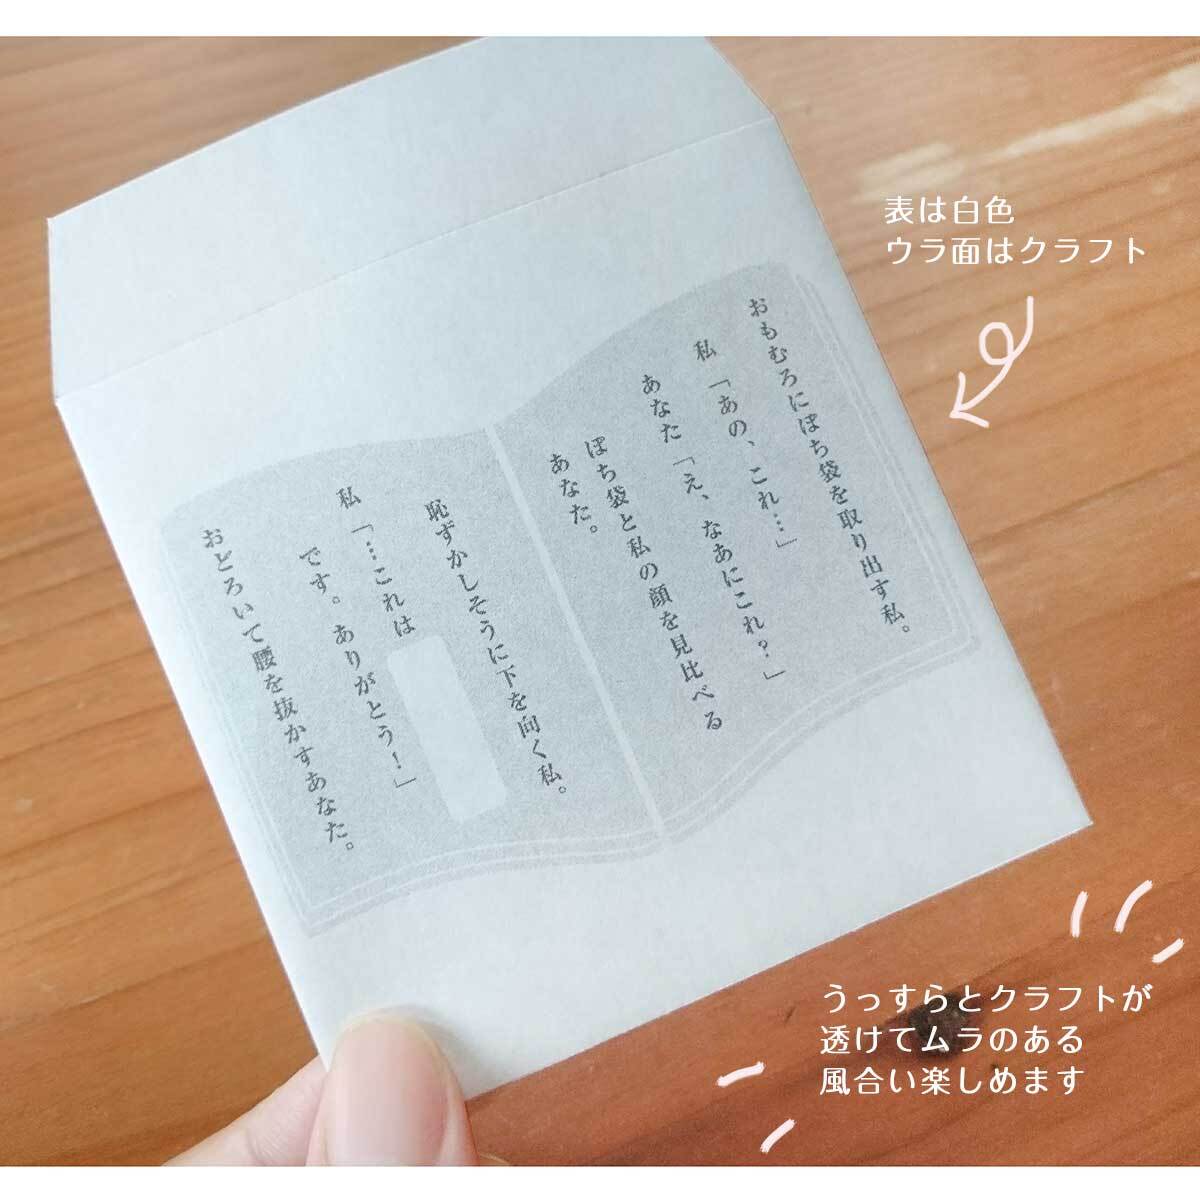 表は白色
ウラ面はクラフト
おもむろにぽち袋を取り出す私。
私「あの、これ…」
あなた「え、なあにこれ？」
ぽち袋と私の顔を見比べる
あなた。
恥ずかしそうに下を向く私。
私「…これは
です。ありがとう！」
おどろいて腰を抜かすあなた。
うっすらとクラフトが
透けてムラのある
風合い楽しめます